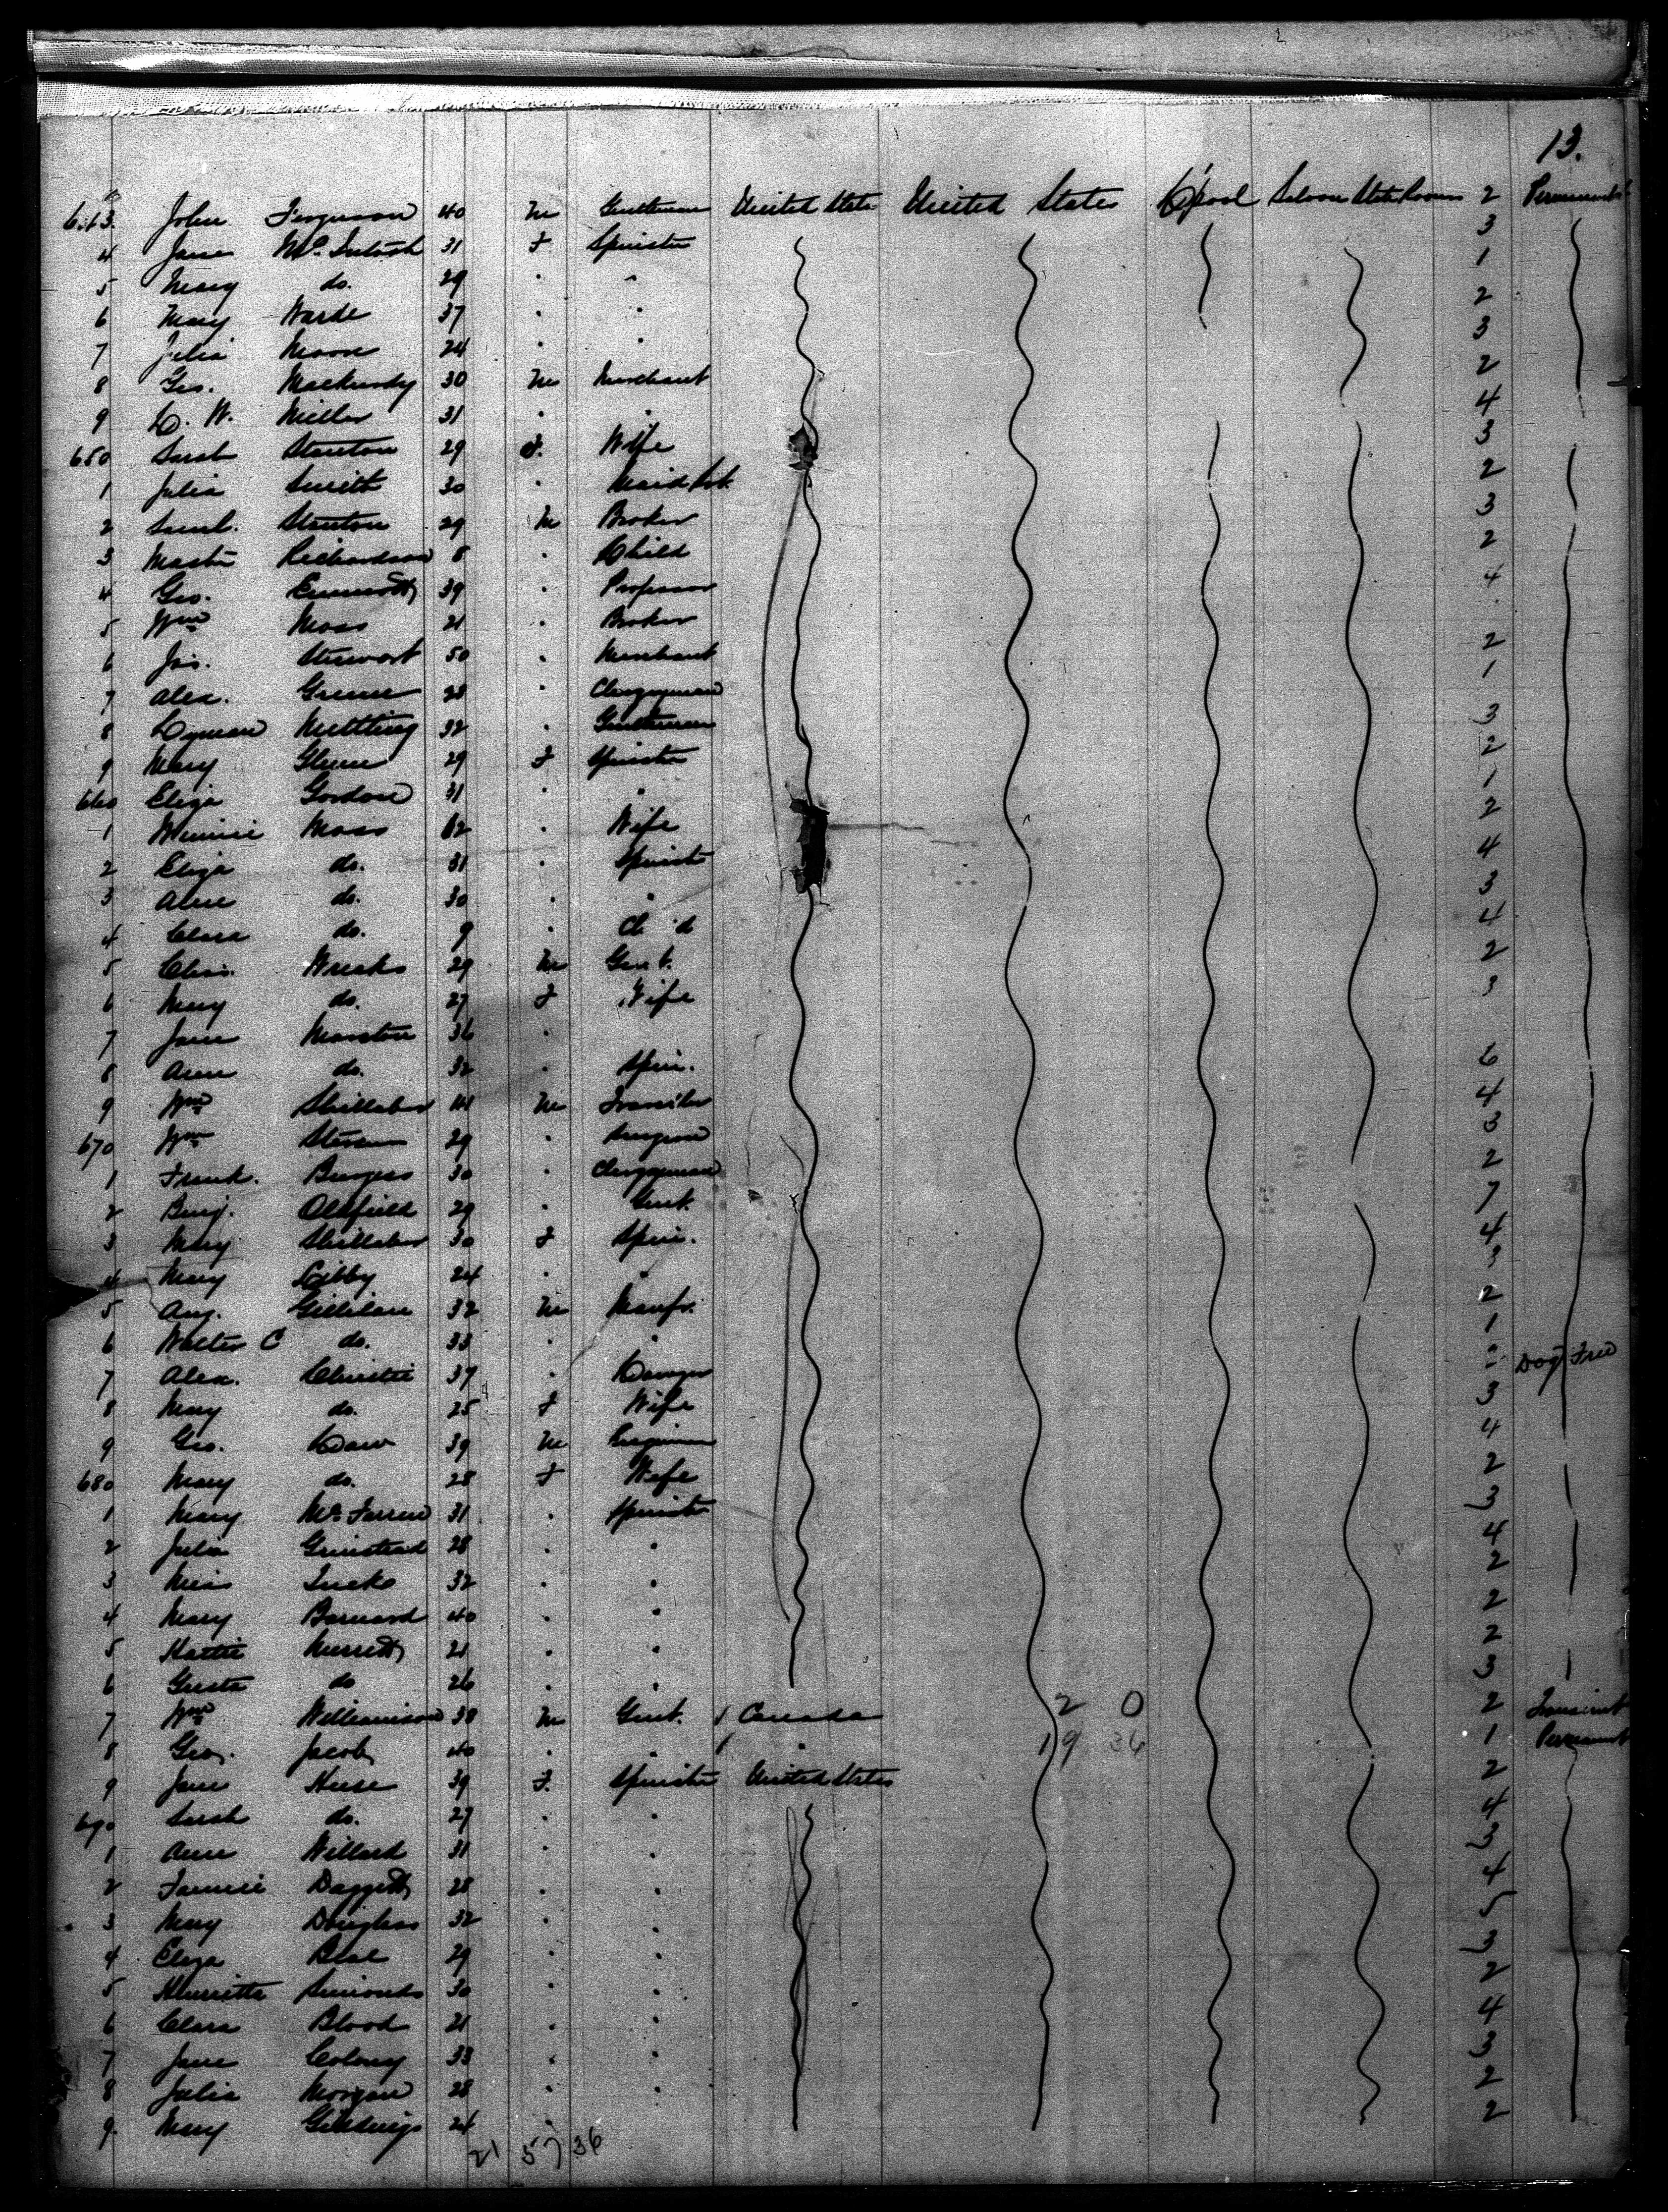 13.
643 John Ferguson 40 M Gentleman United States United States L'pool Saloon State Rooms 2 Permanent
4 Jane McIntosh 31 F Spinster 3
5 Mary do. 29 " " 1
6 Mary Warde 37 " " 2
7 Julia Moore 24 " " 3
8 Geo. 30 M Merchant 2
9 C. W. Miller 31 " " 4
650 Sarah Stanton 29 F. Wife 3
1 Julia Smith 30 " Maid 2
2 Saml. Stanton 29 M Broker 3
3 Master Richardson 8 " Child 2
4 Geo. Emmott 39 " Professor 4
5 Wm Moss 21 " Broker
6 Jas. Stewart 50 " Merchant 2
7 Alex. 28 " Clergyman 1
8 Lyman 32 " Gentleman 3
9 Mary 29 F Spinster 2
660 Eliza Gordon 31 " " 1
1 Minnie Moss 62 " Wife 2
2 Eliza do. 31 " Spinst 4
3 Alice do. 30 " " 3
4 Clara do. 9 " Ch d 4
5 Chas. Weeks 29 M Gent. 2
6 Mary do. 27 F Wife 3
7 Jane Marston 36 "
8 Ann do. 32 " Spin. 6
9 Wm Shillaber 44 M 4
670 Wm 29 " Surgeon 3
1 Frank. Burgess 30 " Clergyman 2
2 Benj. Oldfield 29 " Gent. 7
3 Mary Shillaber 30 F Spin. 4
4 Mary Libby 24 " " 3
5 Aug. Gillilan 32 M Manfr. 2
6 Walter C do. 33 " " 1
7 Alex. Christie 37 " Dog Free
8 Mary do. 25 F Wife 3
9 Geo. 39 M Engineer 4
680 Mary do. 28 F Wife 2
1 Mary 31 " Spinster 3
2 Julia Grinstead 28 " " 4
3 Miss 32 " " 2
4 Mary Barnard 40 " " 2
5 Hattie Merrett 21 " " 2
6 Gusta do 26 " " 3
7 Wm Williamson 38 M Gent. Canada 2 0 2 Transient
8 Geo. Jacob 40 " " " 19 36 1 Permanent
9 Jane 39 F. Spinster United States 2
690 Sarah do. 27 " " 4
1 Ann Willard 31 " " 3
2 Fannie Daggett 28 " " 4
3 Mary Douglass 32 " " 5
4 Eliza Beal 29 " " 3
5 Henrietta Simonds 30 " " 2
6 Clara Blood 21 " " 4
7 Jane Colony 33 " " 3
8 Julia Morgan 28 " " 2
9. Mary Giddings 24 " 2
21 57 36